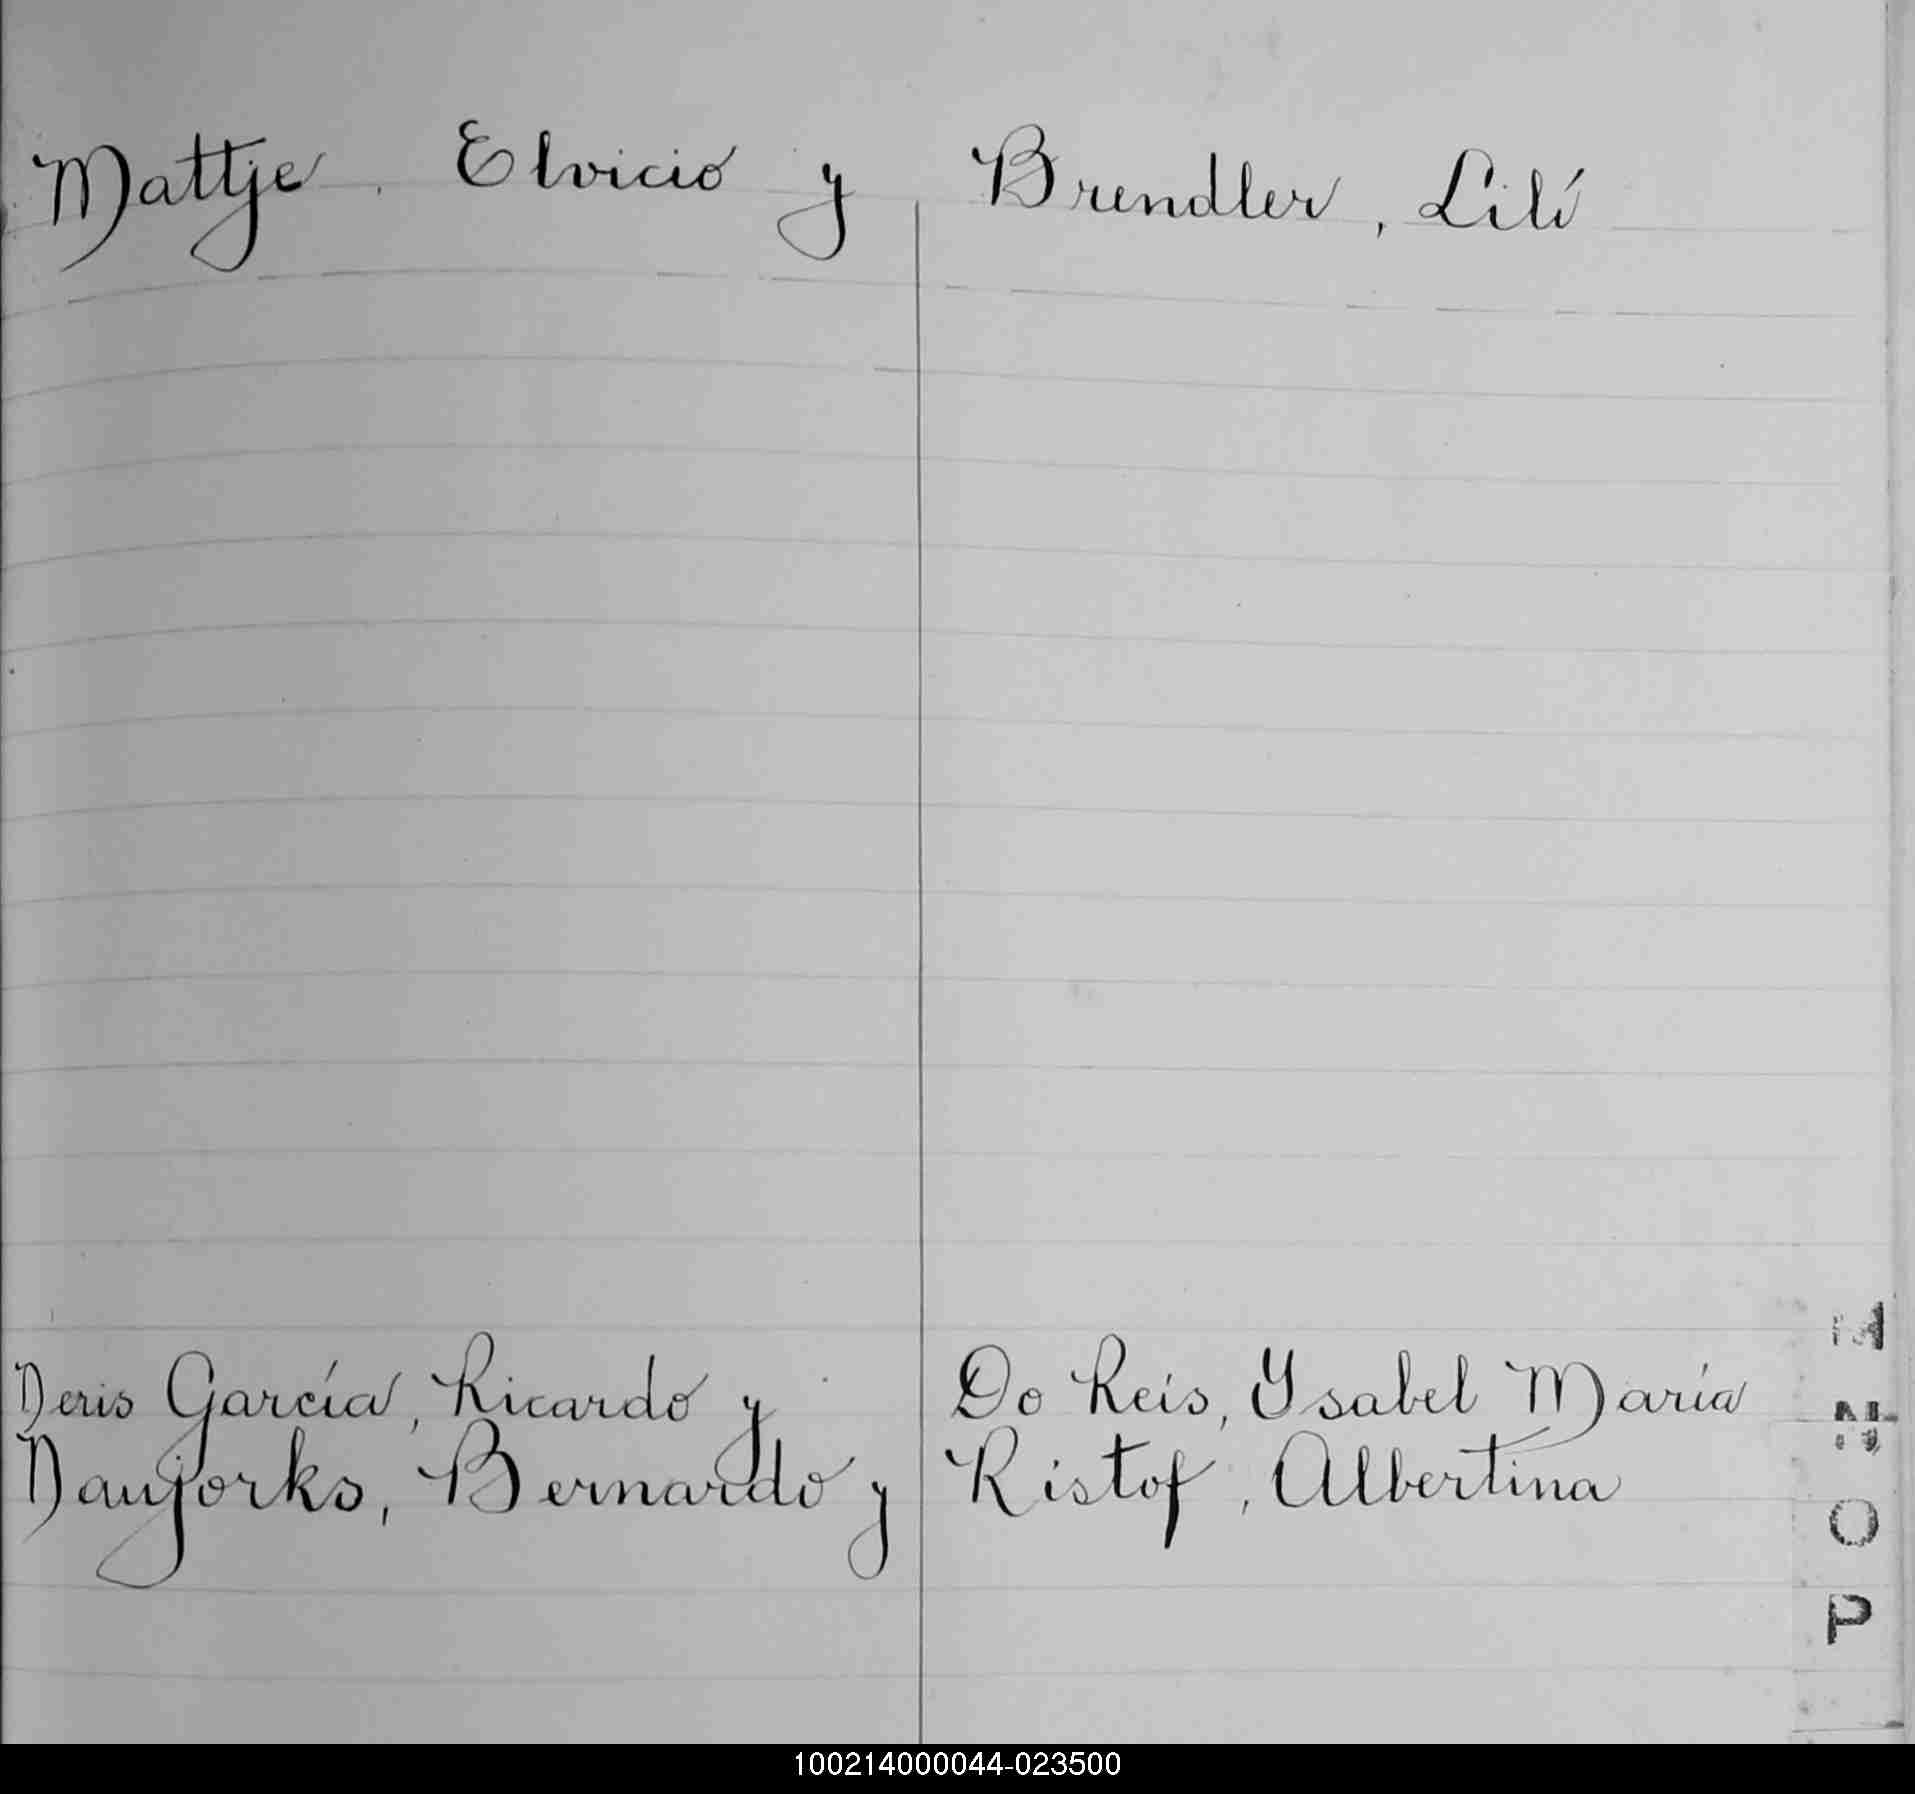 Mattje, Elvicio y Brendler, Lilí
Neris García, Ricardo y Do Reis, Ysabel María
Naujorks, Bernardo y Ristof, Albertina
M
N
O
P
100214000044-023500